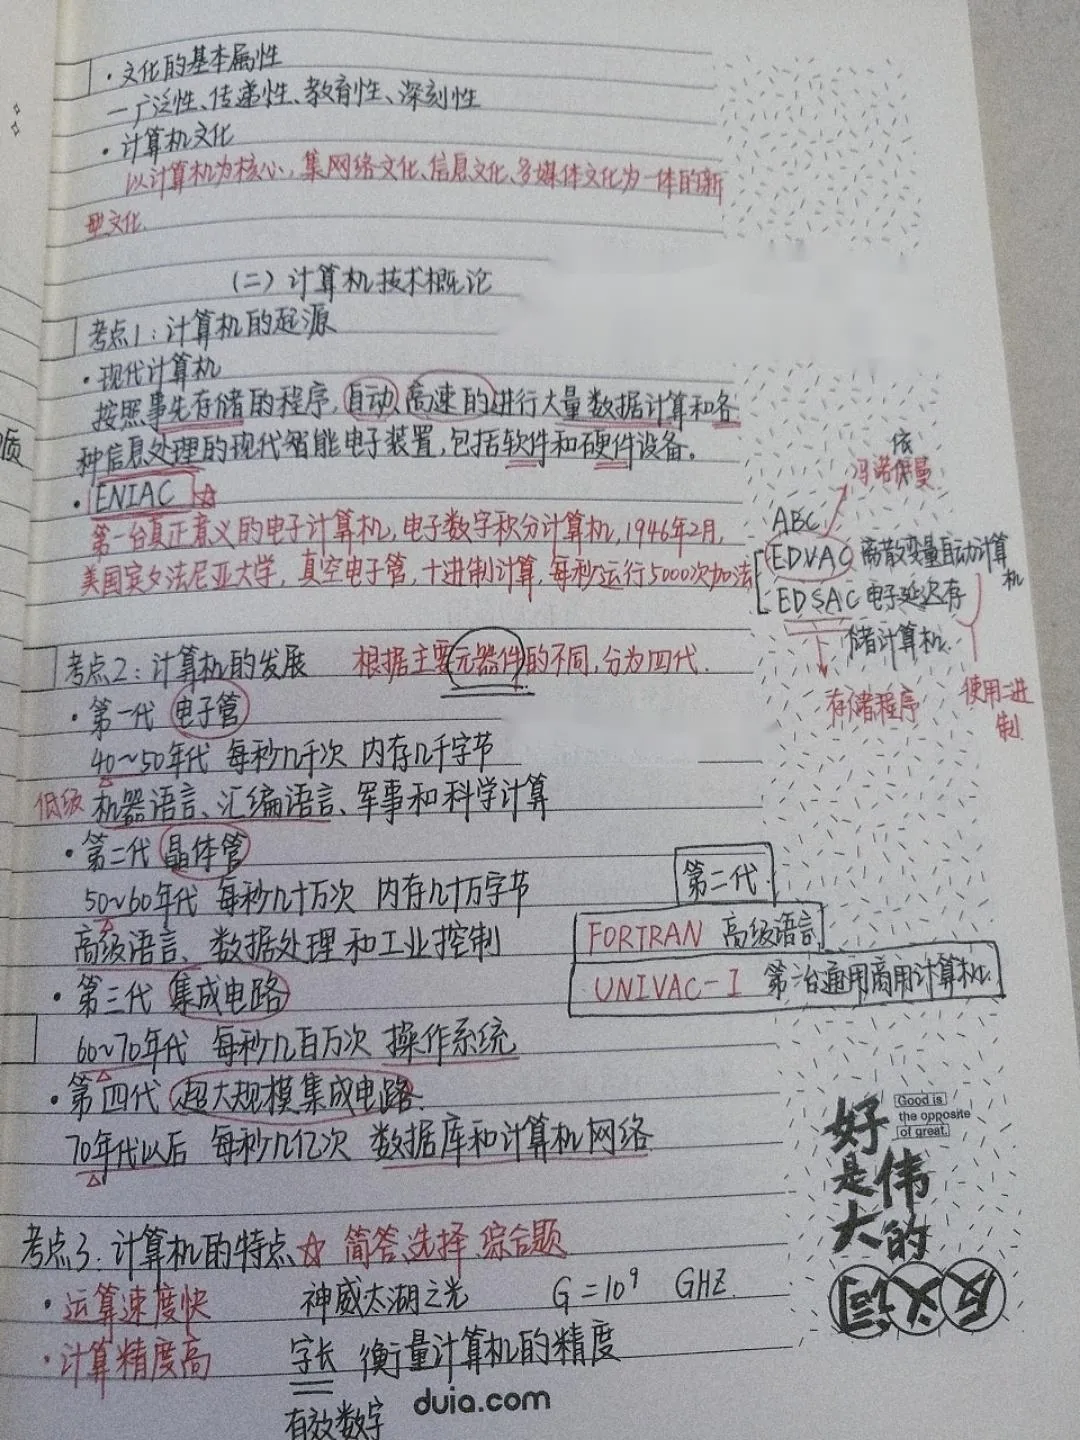 ·文化的基本属性
一广泛性、传递性、教育性、深刻性
·计算机文化
以计算机为核心,集网络文化、信息文化、多媒体文化为一体的新
型文化.
(二)计算机技术概论
考点1:计算机的起源
·现代计算机
按照事先存储的程序,自动、高速的进行大量数据计算和各
种信息处理的现代智能电子装置,包括软件和硬件设备。
·ENIAC ☆
第一台真正意义的电子计算机,电子数字积分计算机,1946年2月,
美国宾夕法尼亚大学,真空电子管,十进制计算,每秒运行5000次加法
依
冯诺依曼
ABC
EDVAC 离散变量自动计算
机
EDSAC 电子延迟存
储计算机
存储程序
使用二进
制
考点2:计算机的发展 根据主要元器件的不同,分为四代.
·第一代 电子管
40~50年代 每秒几千次 内存几千字节
低级 机器语言、汇编语言、军事和科学计算
·第二代 晶体管
50~60年代 每秒几十万次 内存几十万字节
高级语言、数据处理和工业控制
第二代.
FORTRAN 高级语言
UNIVAC-I 第一台通用商用计算机.
·第三代 集成电路
60~70年代 每秒几百万次 操作系统
·第四代 超大规模集成电路.
70年代以后 每秒几亿次 数据库和计算机网络
好
Good is
the opposite
of great.
是伟
大的
反义词
考点3:计算机的特点 ☆ 简答、选择、综合题
·运算速度快 神威太湖之光 G=10⁹ GHZ.
·计算精度高 字长 衡量计算机的精度
有效数字
duia.com